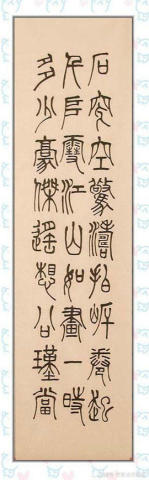 石穿空驚濤拍岸卷起
千堆雪江山如畫一時
多少豪傑遙想公瑾當